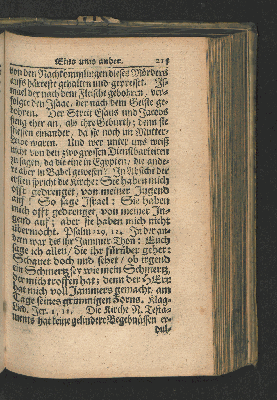 Eins ums ander. 215
von den Nachkömmlingen dieses Mörders
auffs härteste gehalten und gepresset. Is-
mael der nach dem Fleische gebohren, ver-
folgte den Isaac, der nach dem Geiste ge-
bohren. Der Streit Esaus und Jacobs
fieng eher an, als ihre Geburth; denn sie
stiessen einander, da sie noch im Mutter-
Leibe waren. Und wer unter uns weiß
nicht von den zwo grossen Dienstbarkeiten
zu sagen, da die eine in Egypten; die ande-
re aber in Babel gewesen? In Absicht der
ersten spricht die Kirche: Sie haben mich
offt gedrenget, von meiner Jugend
auf! So sage Israel: Sie haben
mich offt gedrenget, von meiner Ju-
gend auf; aber sie haben mich nicht
übermocht. Psalm 129, 1 2. In der an-
dern war diß ihr Jammer-Thon: Euch
sage ich allen/ die ihr fürüber gehet:
Schauet doch und sehet/ ob irgend
ein Schmertz sey wie mein Schmertz,
der mich troffen hat; denn der HErr
hat mich voll Jammers gemacht, am
Tage seines grimmigen Zorns. Klag-
Lied. Jer. 1, 12. Die Kirche N. Testa-
ments hat keine gelindere Begebnüssen er-
dul-